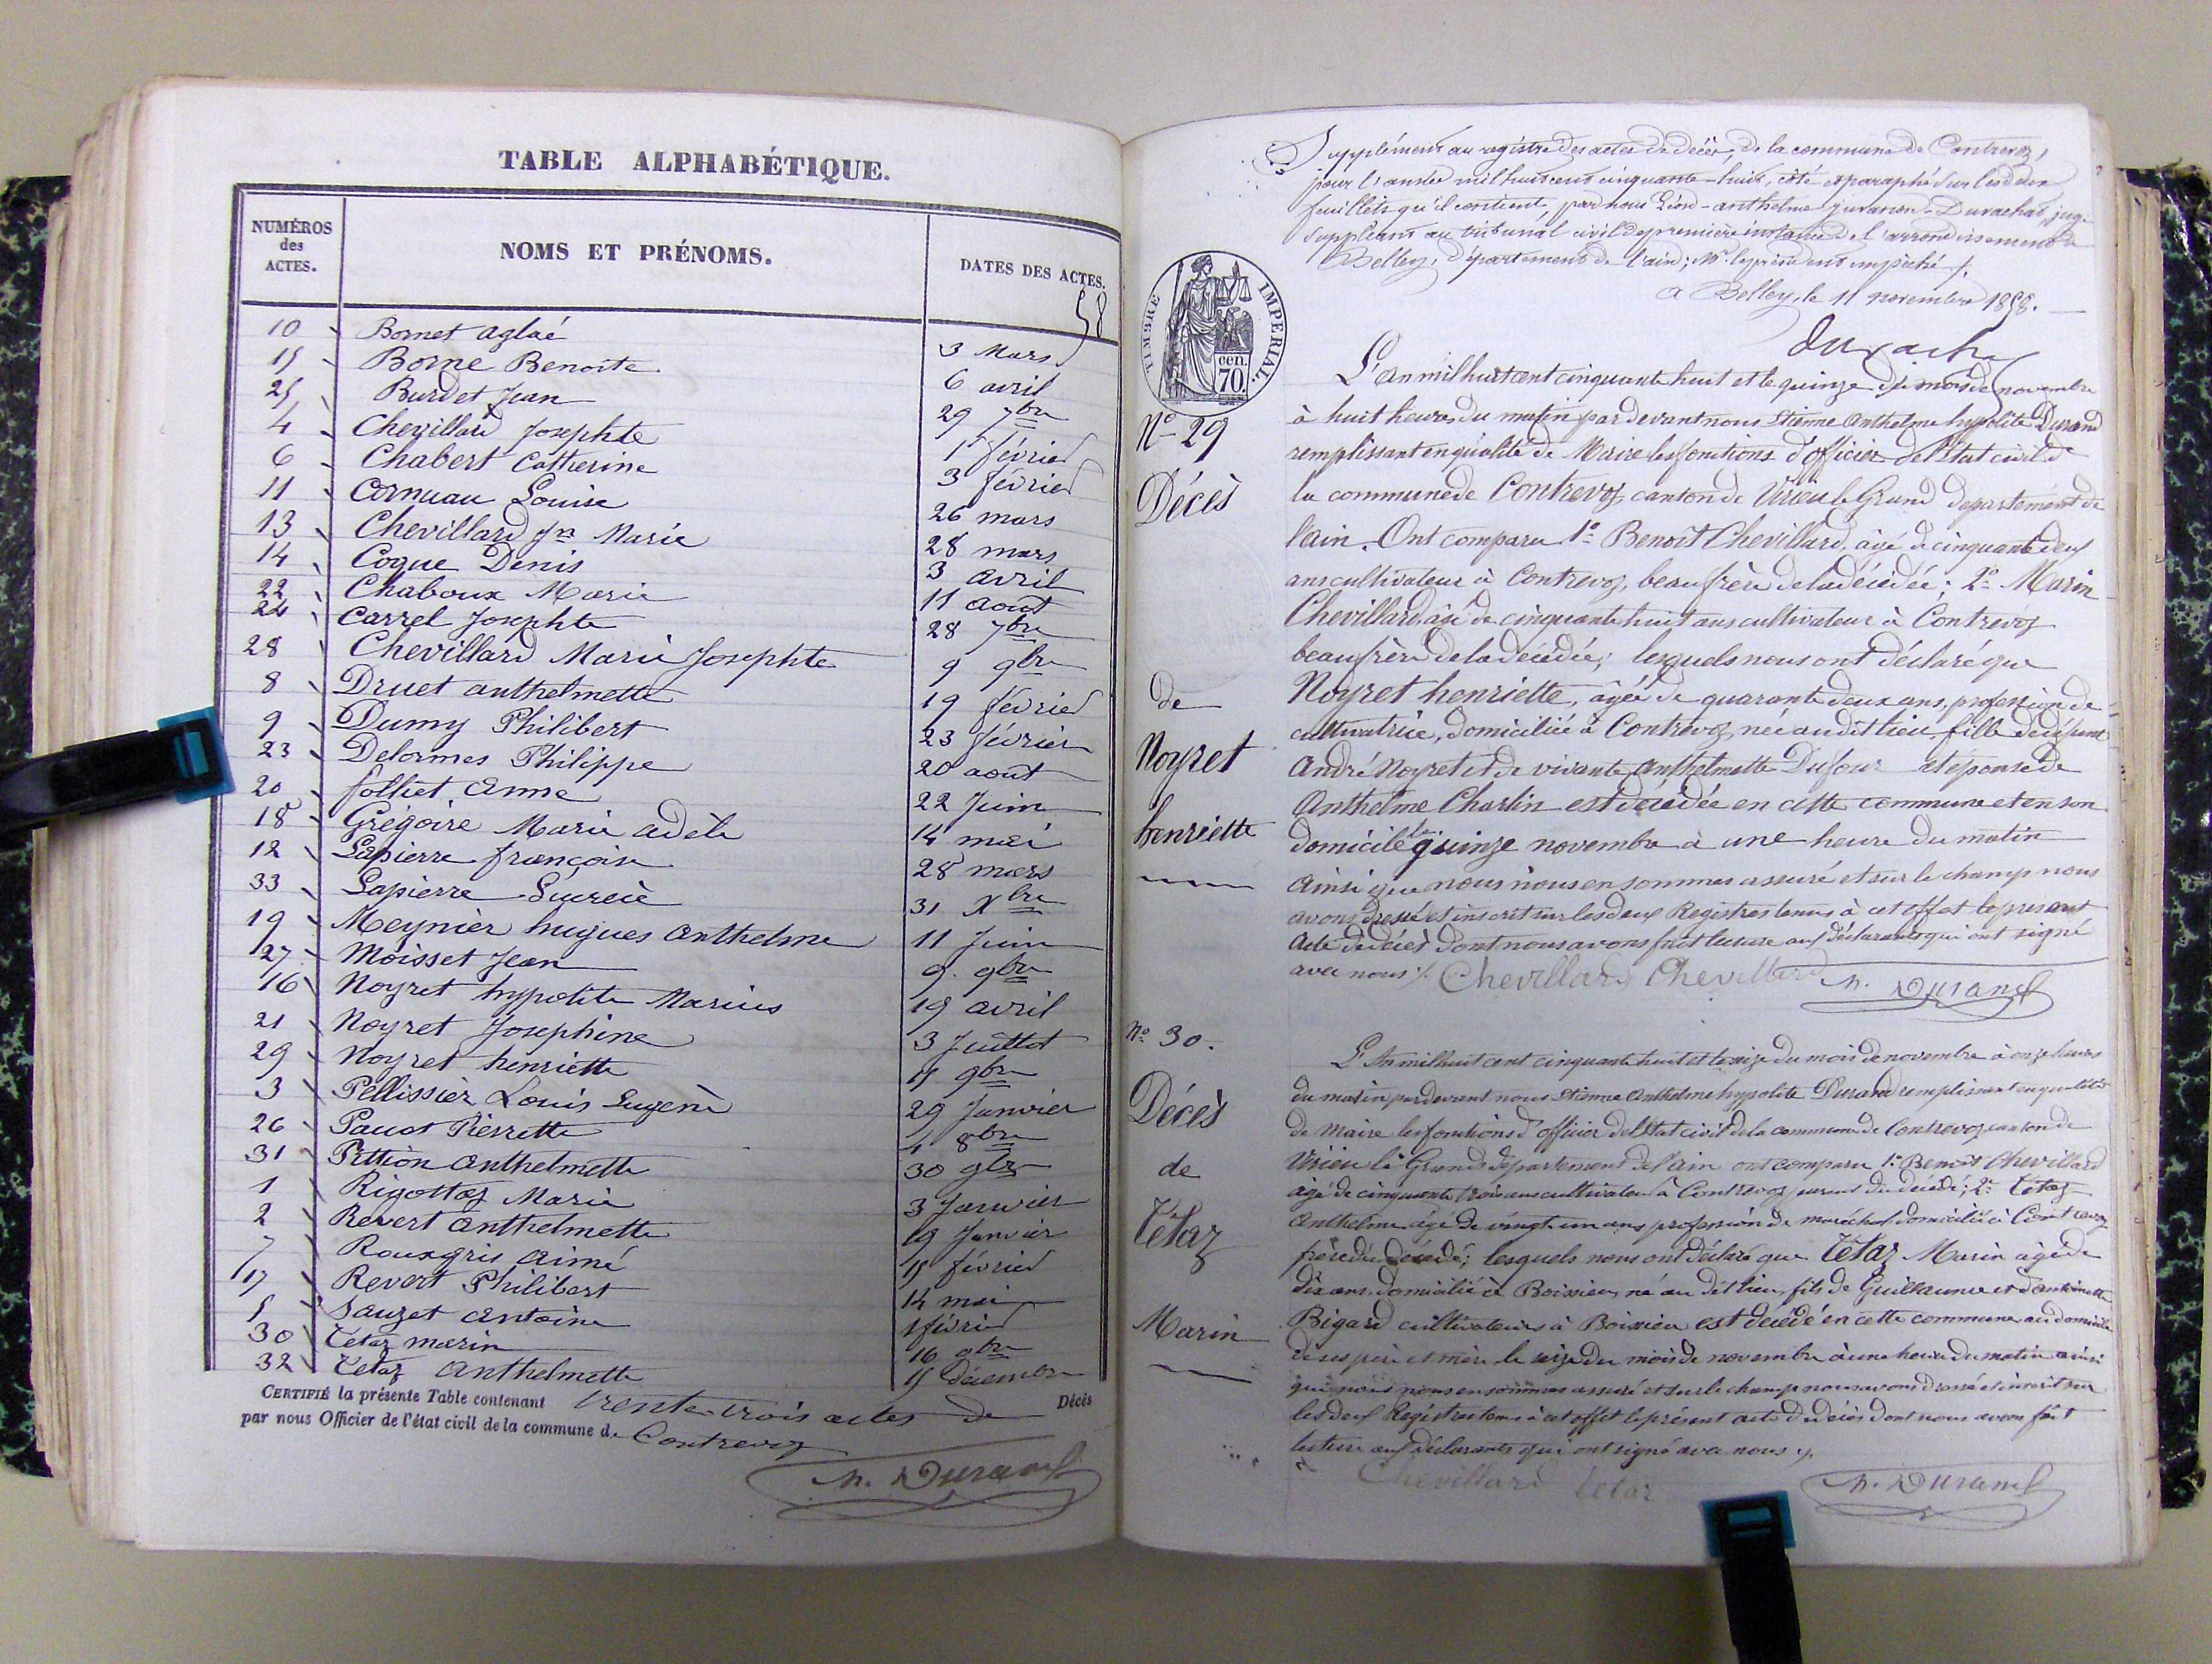 TABLE ALPHABÉTIQUE.
NUMÉROS des ACTES.
NOMS ET PRÉNOMS.
DATES DES ACTES.
58
10 Bornet aglaé 3 Mars
15 Borne Benoite 6 avril
25 Burdet Jean 29 7bre
4 Chevillard Josephte 1 février
6 Chabert Catherine 3 février
11 Cornuau Louise 26 mars
13 Chevillard Marie 28 mars
14 Coque Denis 3 avril
22 Chaboux Marie 11 aout
24 Carrel Josephte 28 7bre
28 Chevillard Marie Josephte 9 9bre
8 Druet anthelmette 19 février
9 Dumy Philibert 23 février
23 Delormes Philippe 20 aout
20 folliet Anne 22 Juin
18 Grégoire Marie adèle 14 mai
12 Lapierre françoise 28 mars
33 Lapierre Lucrèce 31 Xbre
19 Meynier hugues Anthelme 11 Juin
27 Moisset Jean 9 9bre
16 Noyret hypolite Marius 19 avril
21 Noyret Josephine 3 Juillet
29 Noyret henriette 15 9bre
3 Pellissier Louis Eugène 29 Janvier
26 Pierrette 4 8bre
31 Pittion Anthelmette 30 9bre
1 Rigottaz Marie 3 Janvier
2 Revert Anthelmette 19 Janvier
7 Rouxgris Aimé 15 février
17 Revert Philibert 14 mai
5 Sauzet Antoine février
30 Tétaz marin 16 9bre
32 Tetaz Anthelmette 15 décembre
CERTIFIÉ la présente Table contenant trente-trois actes de Décès
par nous Officier de l'état civil de la commune de Contrevoz
h. Durand
Supplément au registre des actes de décès, de la commune de Contrevoz,
pour l'année mil huit cent cinquante-huit, coté et paraphé sur les deux
feuillets qu'il contient, par nous Léon-anthelme Duvachat, juge
suppléant au tribunal civil de première instance de l'arrondissement de
Belley, département de l'ain; Mr le président empêché /.
a Belley, le 11 novembre 1858.
Duvachat
TIMBRE IMPERIAL.
cen. 70.
L'an mil huit cent cinquante huit et le quinze du mois de novembre
à huit heures du matin par devant nous Etienne Anthelme hypolite Durand
remplissant en qualité de Maire les fonctions d'officier de l'Etat civil de
la commune de Contrevoz, canton de Virieu le Grand departement de
l'ain. Ont comparu 1° Benoît Chevillard, âgé de cinquante deux
ans cultivateur à Contrevoz, beau frère de la décédée; 2° Marin
Chevillard, âgé de cinquante huit ans cultivateur à Contrevoz
beau frère de la décédée; lesquels nous ont déclaré que
Noyret henriette, âgée de quarante deux ans, profession de
cultivatrice, domiciliée à Contrevoz, née audit lieu fille de défunt
André Noyret et de vivante Anthelmette Dufour et épouse de
Anthelme Charlin est décédée en cette commune et en son
domicile le quinze novembre à une heure du matin
ainsi que nous nous en sommes assuré et sur le champ nous
avons dressé et inscrit sur les deux Registres tenus à cet effet le présent
acte de décès dont nous avons fait lecture aux déclarants qui ont signé
avec nous /. Chevillard Chevillard h. Durand
N° 29
Décès
de
Noyret
henriette
N° 30.
Décès
de
Tétaz
Marin
L'An mil huit cent cinquante huit et le seize du mois de novembre à onze heures
du matin par devant nous Etienne Anthelme hypolite Durand remplissant en qualité
de Maire les fonctions d'officier de l'Etat civil de la commune de Contrevoz canton de
Virieu le Grand département de l'ain ont comparu 1° Benoît Chevillard
âgé de cinquante trois ans cultivateur à Contrevoz parent du décédé; 2° Tétaz
Anthelme âgé de vingt un ans profession de maréchal domicilié à Contrevoz
frère du décédé; lesquels nous ont déclaré que Tétaz Marin âgé de
dix ans, domicilié à Boissieu, né au dit lieu, fils de Guillaume et d'antoinette
Bigard cultivateurs à Boissieu est décédé en cette commune au domicile
de ses père et mère le seize du mois de novembre à une heure du matin ainsi
que nous nous en sommes assuré et sur le champ nous avons dressé et inscrit sur
les deux Registres tenus à cet effet le présent acte de décès dont nous avons fait
lecture aux déclarants qui ont signé avec nous /.
Chevillard tetaz h. Durand